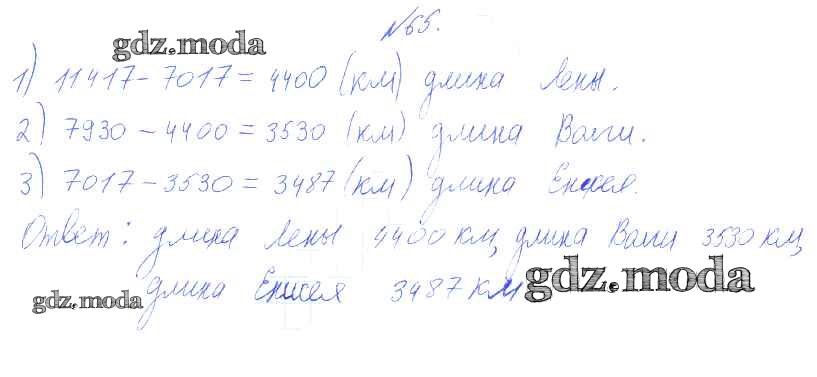 №65.
gdz.moda
1) 11417 - 7017 = 4400 (км) длина Лены.
2) 7930 - 4400 = 3530 (км) длина Волги.
3) 7017 - 3530 = 3487 (км) длина Енисея.
Ответ: длина Лены 4400 км, длина Волги 3530 км,
длина Енисея 3487 км
gdz.moda
gdz.moda